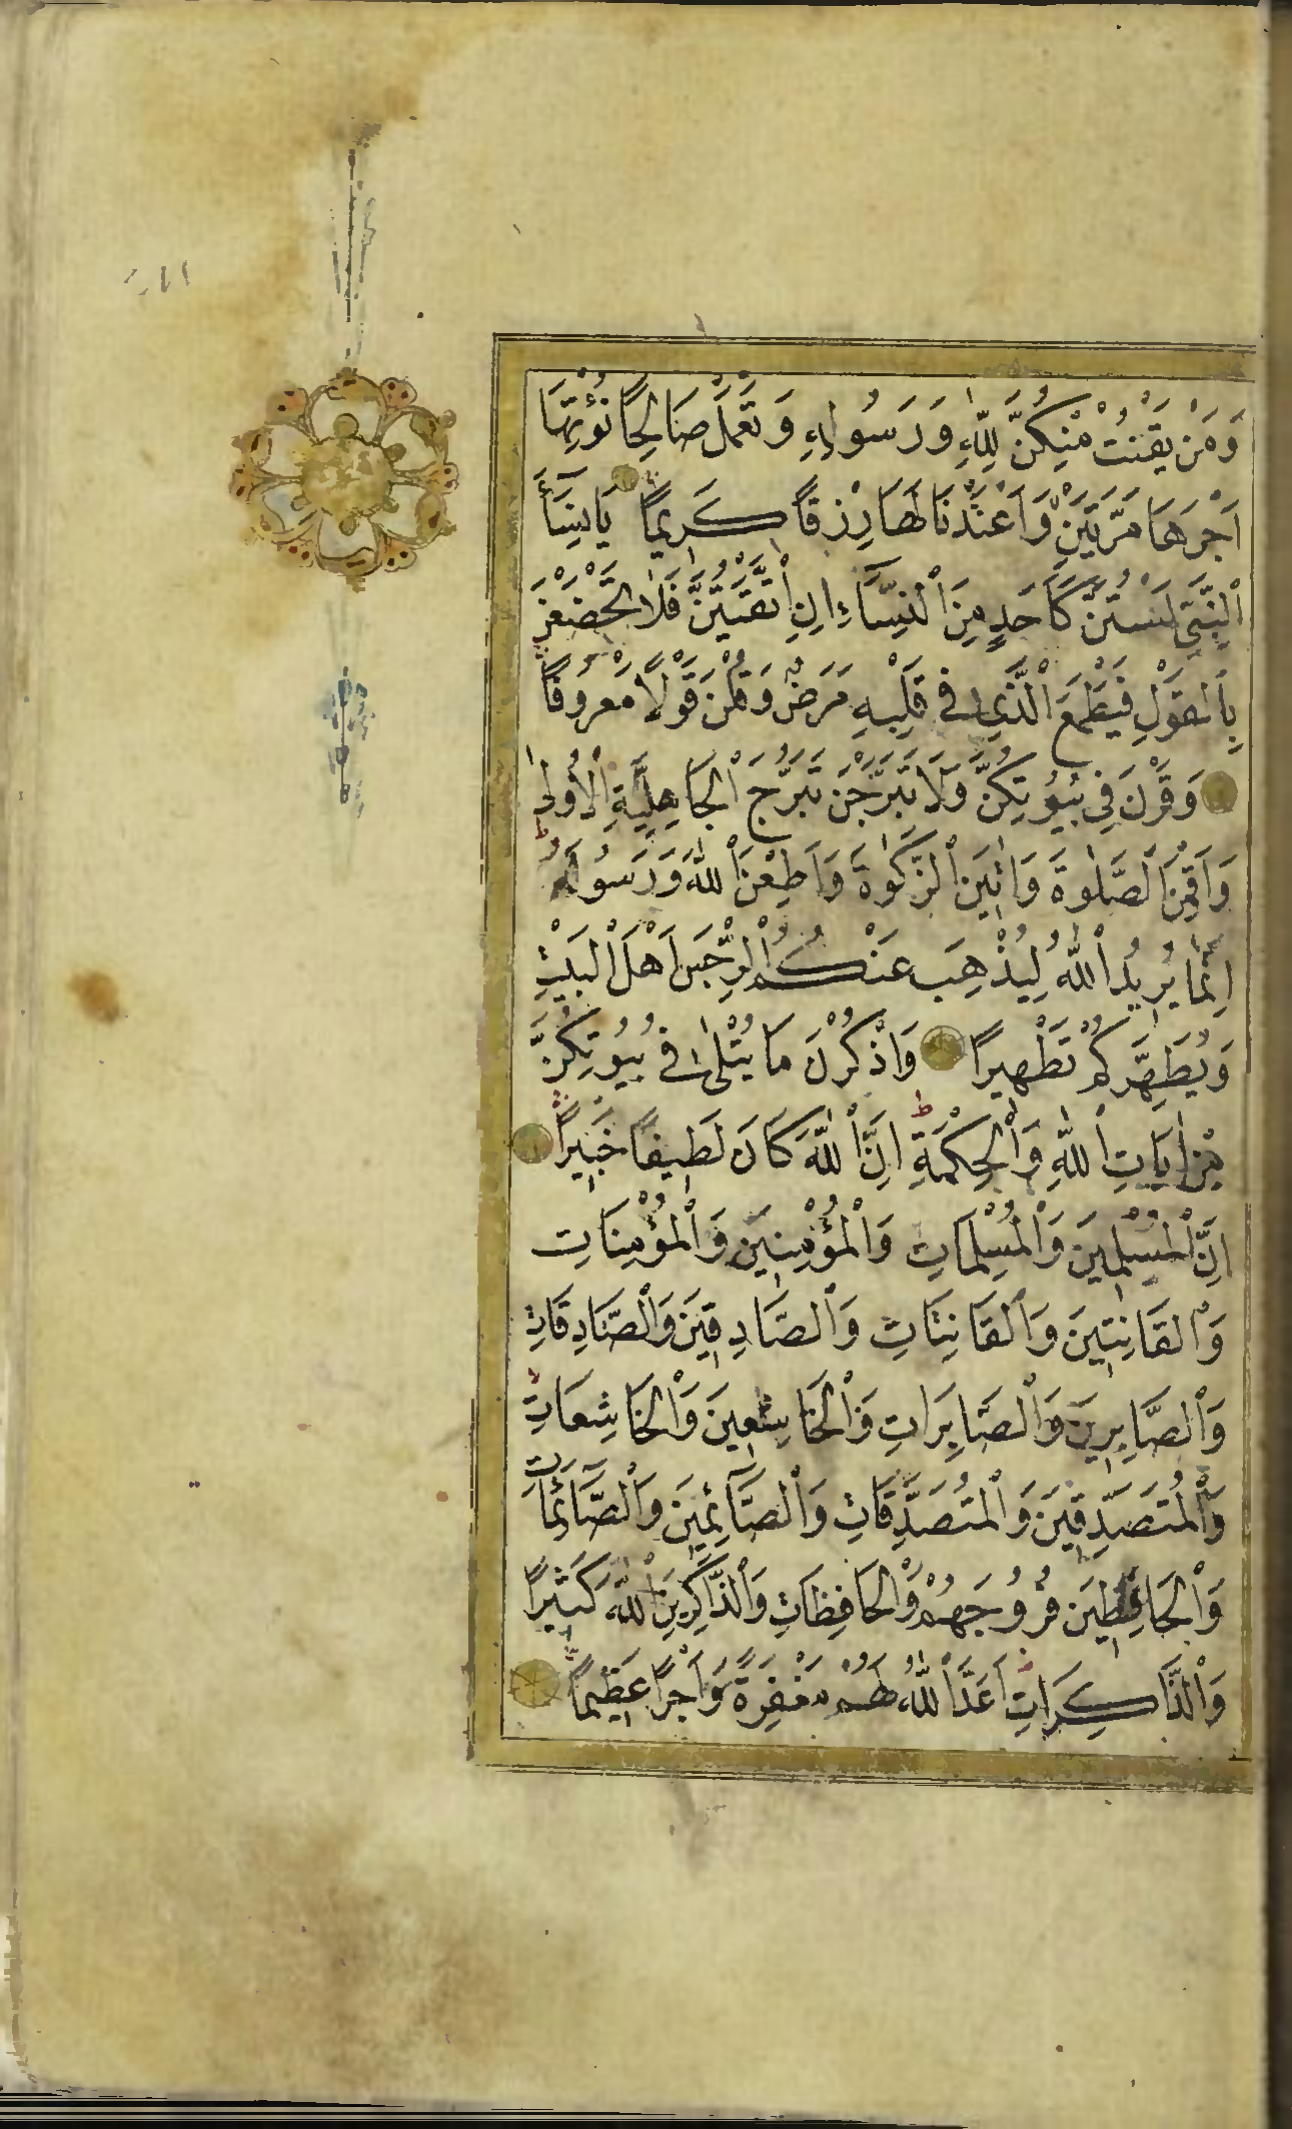 وَمَنْ يَقْنُتْ مِنْكُنَّ لِلّٰهِ وَرَسُولِهِ وَتَعْمَلْ صَالِحًا نُؤْتِهَا
اَجْرَهَا مَرَّتَيْنِ وَاَعْتَدْنَا لَهَا رِزْقًا كَرِيمًا يَا نِسَآءَ
النَّبِيِّ لَسْتُنَّ كَاَحَدٍ مِنَ النِّسَآءِ اِنِ اتَّقَيْتُنَّ فَلَا تَخْضَعْنَ
بِالْقَوْلِ فَيَطْمَعَ الَّذِي فِي قَلْبِهِ مَرَضٌ وَقُلْنَ قَوْلًا مَعْرُوفًا
وَقَرْنَ فِي بُيُوتِكُنَّ وَلَا تَبَرَّجْنَ تَبَرُّجَ الْجَاهِلِيَّةِ الْاُولٰى
وَاَقِمْنَ الصَّلٰوةَ وَاٰتِينَ الزَّكٰوةَ وَاَطِعْنَ اللّٰهَ وَرَسُولَهُ
اِنَّمَا يُرِيدُ اللّٰهُ لِيُذْهِبَ عَنْكُمُ الرِّجْسَ اَهْلَ الْبَيْتِ
وَيُطَهِّرَكُمْ تَطْهِيرًا وَاذْكُرْنَ مَا يُتْلٰى فِي بُيُوتِكُنَّ
مِنْ اٰيَاتِ اللّٰهِ وَالْحِكْمَةِ اِنَّ اللّٰهَ كَانَ لَطِيفًا خَبِيرًا
اِنَّ الْمُسْلِمِينَ وَالْمُسْلِمَاتِ وَالْمُؤْمِنِينَ وَالْمُؤْمِنَاتِ
وَالْقَانِتِينَ وَالْقَانِتَاتِ وَالصَّادِقِينَ وَالصَّادِقَاتِ
وَالصَّابِرِينَ وَالصَّابِرَاتِ وَالْخَاشِعِينَ وَالْخَاشِعَاتِ
وَالْمُتَصَدِّقِينَ وَالْمُتَصَدِّقَاتِ وَالصَّآئِمِينَ وَالصَّآئِمَاتِ
وَالْحَافِظِينَ فُرُوجَهُمْ وَالْحَافِظَاتِ وَالذَّاكِرِينَ اللّٰهَ كَثِيرًا
وَالذَّاكِرَاتِ اَعَدَّ اللّٰهُ لَهُمْ مَغْفِرَةً وَاَجْرًا عَظِيمًا